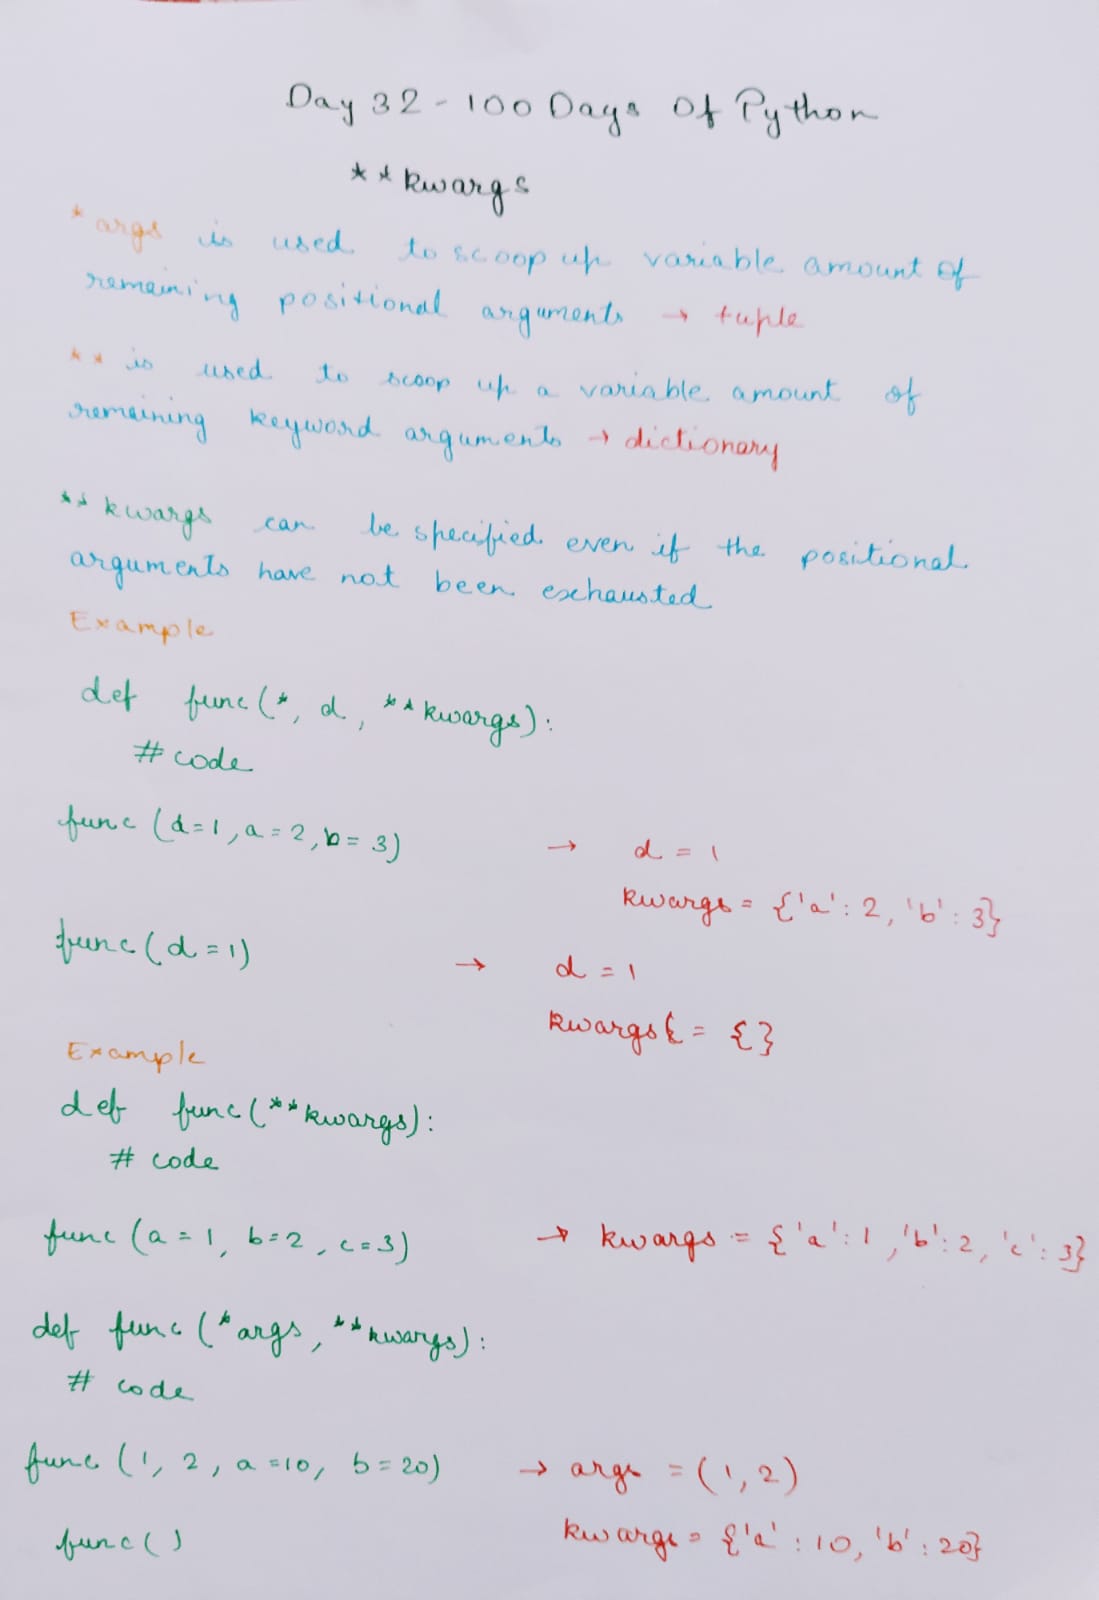 Day 32 - 100 Days Of Python
**kwargs
*args is used to scoop up variable amount of
remaining positional arguments → tuple
** is used to scoop up a variable amount of
remaining keyword arguments → dictionary
**kwargs can be specified even if the positional
arguments have not been exhausted
Example
def func(*, d, **kwargs):
# code
func (d=1, a=2, b=3) → d = 1
kwargs = {'a': 2, 'b': 3}
func(d=1) → d = 1
kwargs{ = {}
Example
def func(**kwargs):
# code
func (a=1, b=2, c=3) → kwargs = {'a':1, 'b':2, 'c':3}
def func (*args, **kwargs):
# code
func (1, 2, a=10, b=20) → args = (1,2)
kwargs = {'a' : 10, 'b' : 20}
func()